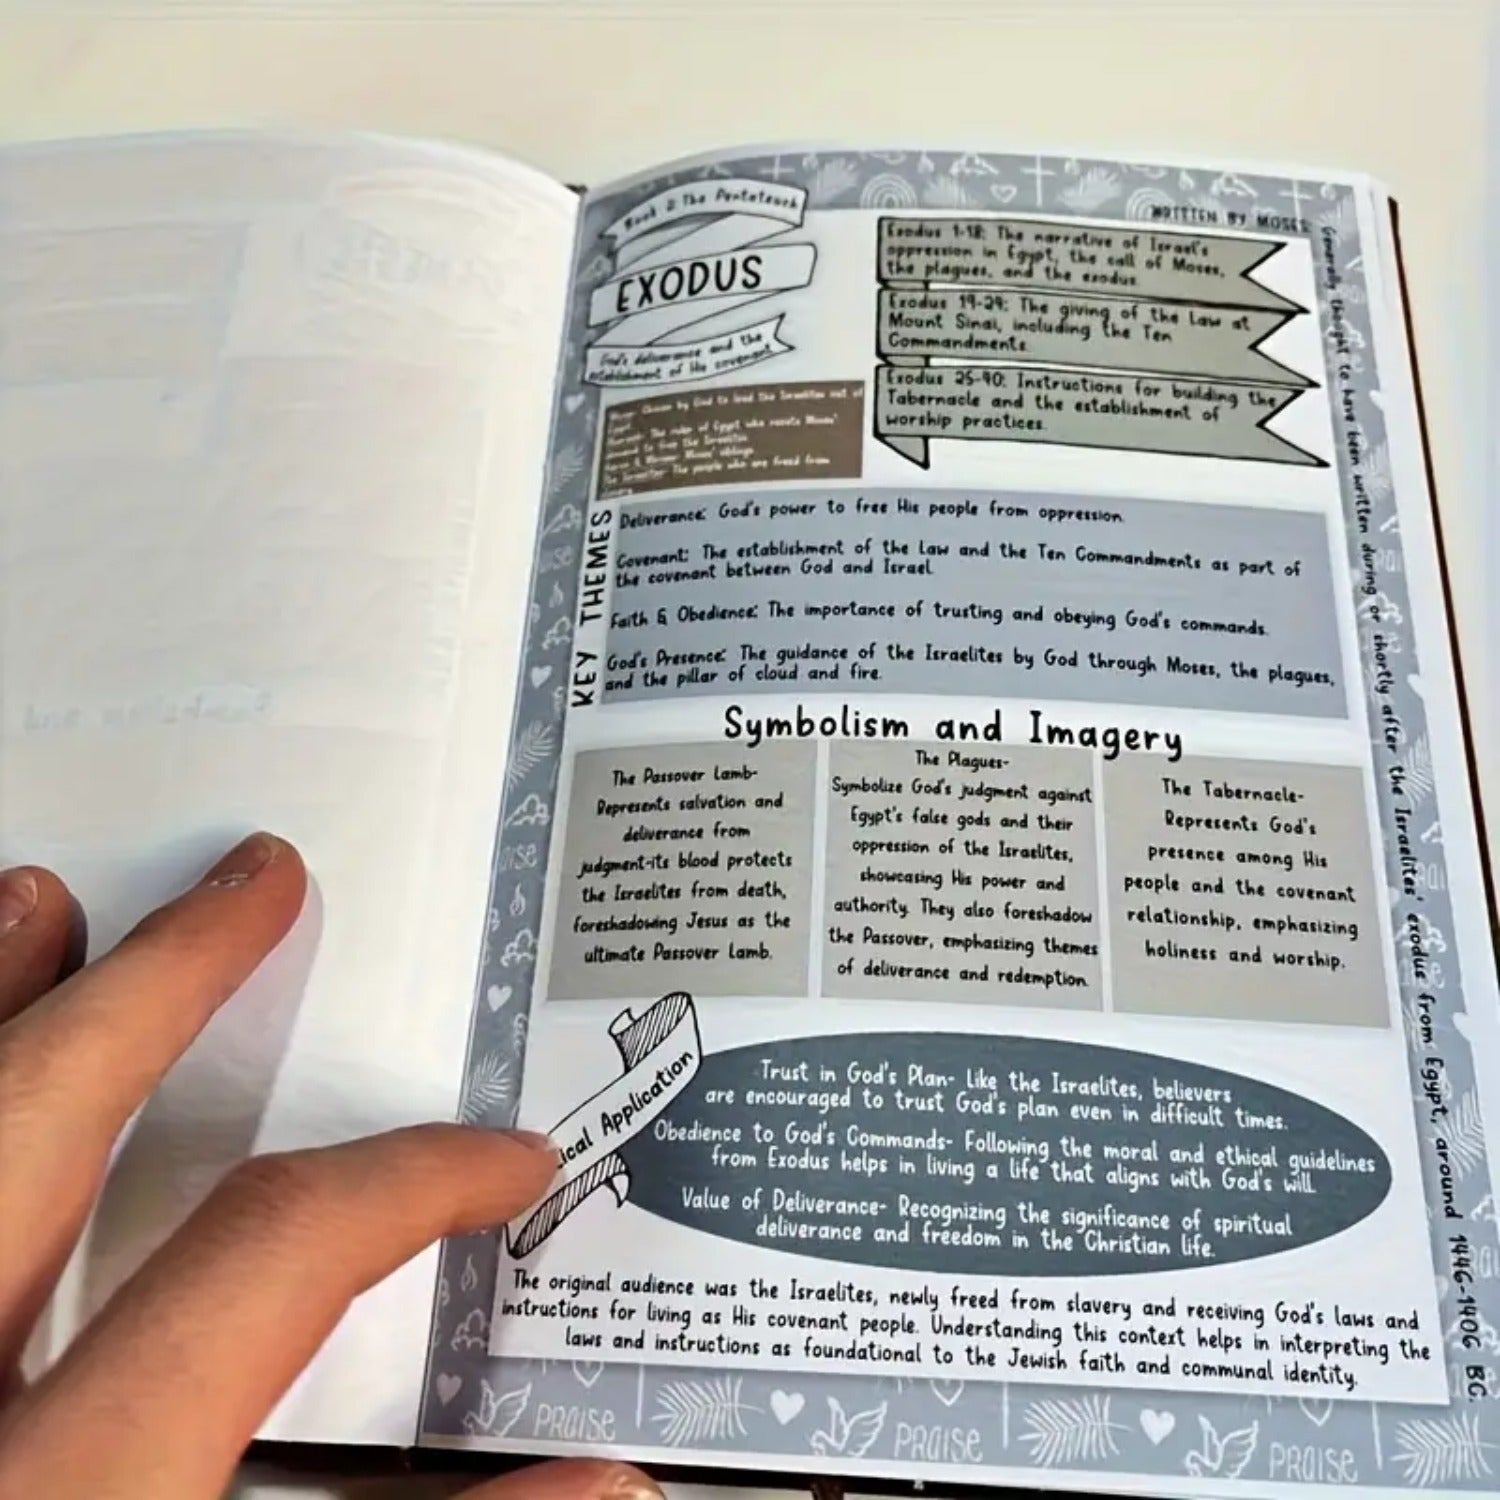 Book 2: The Pentateuch
EXODUS
God's deliverance and the
establishment of His covenant
WRITTEN BY MOSES:
Exodus 1-18: The narrative of Israel's
oppression in Egypt, the call of Moses,
the plagues, and the exodus.
Exodus 19-24: The giving of the Law at
Mount Sinai, including the Ten
Commandments.
Exodus 25-40: Instructions for building the
Tabernacle and the establishment of
worship practices.
Moses: Chosen by God to lead the Israelites out of
Egypt.
Pharaoh: The ruler of Egypt who resists Moses'
demand to free the Israelites.
Aaron & Miriam: Moses' siblings
The Israelites: The people who are freed from
slavery
KEY THEMES
Deliverance: God's power to free His people from oppression.
Covenant: The establishment of the Law and the Ten Commandments as part of
the covenant between God and Israel.
Faith & Obedience: The importance of trusting and obeying God's commands.
God's Presence: The guidance of the Israelites by God through Moses, the plagues,
and the pillar of cloud and fire.
Symbolism and Imagery
The Passover Lamb-
Represents salvation and
deliverance from
judgment-its blood protects
the Israelites from death,
foreshadowing Jesus as the
ultimate Passover Lamb.
The Plagues-
Symbolize God's judgment against
Egypt's false gods and their
oppression of the Israelites,
showcasing His power and
authority. They also foreshadow
the Passover, emphasizing themes
of deliverance and redemption.
The Tabernacle-
Represents God's
presence among His
people and the covenant
relationship, emphasizing
holiness and worship.
ical Application
Trust in God's Plan- Like the Israelites, believers
are encouraged to trust God's plan even in difficult times.
Obedience to God's Commands- Following the moral and ethical guidelines
from Exodus helps in living a life that aligns with God's will.
Value of Deliverance- Recognizing the significance of spiritual
deliverance and freedom in the Christian life.
The original audience was the Israelites, newly freed from slavery and receiving God's laws and
instructions for living as His covenant people. Understanding this context helps in interpreting the
laws and instructions as foundational to the Jewish faith and communal identity.
Generally thought to have been written during or shortly after the Israelites' exodus from Egypt, around 1446-1406 BC.
PRAISE
PRAISE
PRAISE